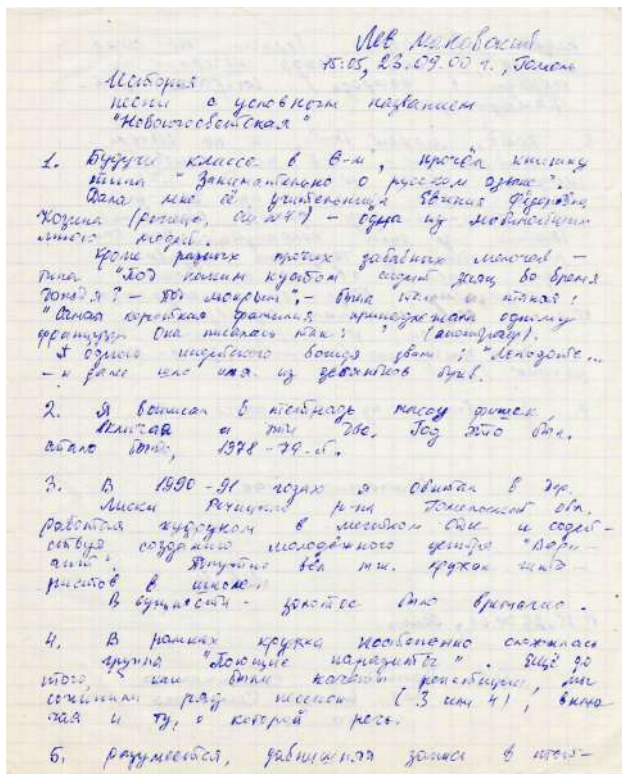 Лев Маковский
15:05, 23.09.00 г., Гомель
История
песни с условным названием
"Новоогосветская"
1. Будучи классе в 6-м, прочёл книжку
типа "Занимательно о русском языке".
Дала мне её учительница Евгения Фёдоровна
Козина (Речица, СШ №4) – одна из
много людей.
Кроме разных прочих забавных мелочей –
типа "Под каким кустом сидит заяц во время
дождя? – Под мокрым", – была там и такая:
"Самая короткая фамилия принадлежала одному
французу. Она писалась так: ' (апостроф).
А одного индейского вождя звали: "Леподоте...
– и далее шло имя из девяностов букв.
2. Я вписал в тетрадь массу фишек,
включая и эти две. Год это был,
стало быть, 1978-79-й.
3. В 1990-91 годах я обитал в дер.
Лиски Речицкого р-на Гомельской обл.,
работая худруком в местном СДК и содей-
ствуя созданию молодёжного центра "Вари-
ант". Попутно вёл там кружок гита-
ристов в школе.
В сущности – золотое было времечко.
4. В рамках кружка постепенно сложилась
группа "Поющие паразиты". Ещё до
того, как были начаты репетиции, мы
сочинили ряд песенок (3 или 4), вклю-
чая и ту, о которой речь.
5. Разумеется, давнишняя запись в тетр-